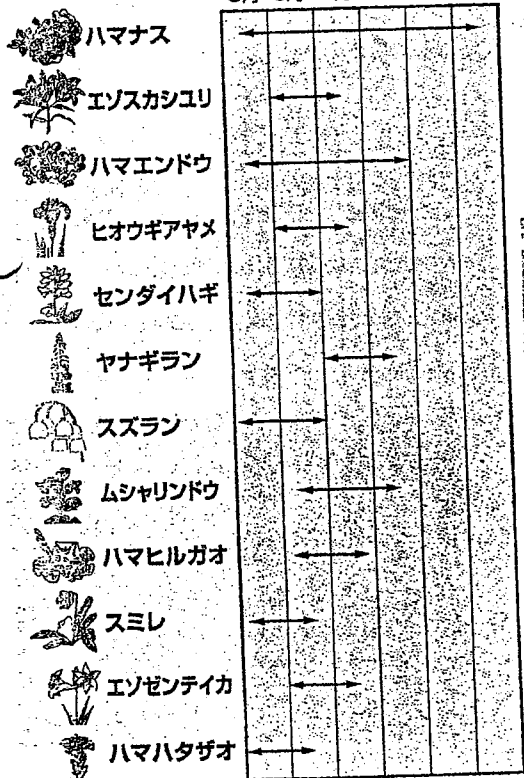 ハマナス
エゾスカシユリ
ハマエンドウ
ヒオウギアヤメ
センダイハギ
ヤナギラン
スズラン
ムシャリンドウ
ハマヒルガオ
スミレ
エゾゼンテイカ
ハマハタザオ